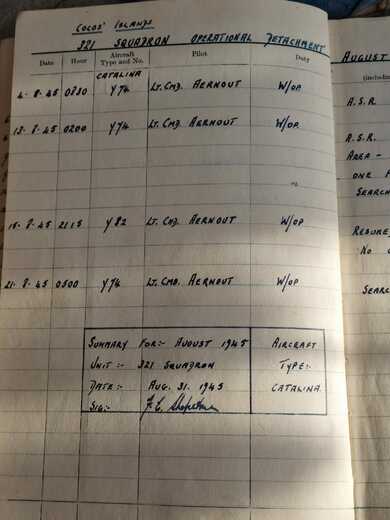 COCOS' ISLANDS
321 SQUADRON OPERATIONAL DETACHMENT
Date Hour Aircraft Type and No. Pilot Duty
CATALINA
4-8-45 0830 Y74 LT. CMD. AERNOUT W/OP
13-8-45 0200 Y74 LT. CMD. AERNOUT W/OP
15-8-45 2115 Y82 LT. CMD. AERNOUT W/OP
21-8-45 0500 Y74 LT. CMD. AERNOUT W/OP
SUMMARY FOR:- AUGUST 1945 AIRCRAFT
UNIT:- 321 SQUADRON TYPE:-
DATE:- AUG. 31. 1945 CATALINA
SIG:-
AUGUST
A.S.R.
A.S.R.
AREA -
ONE
SEARCH
RESUME
NO
SEARC